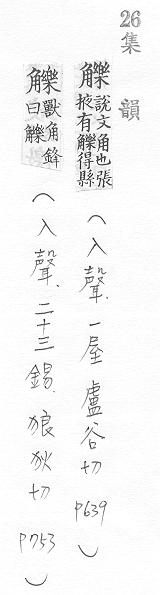 26
集韻
觻說文角也張掖有觻得縣(入聲、一屋 盧谷切 P639)
觻獸角鋒曰觻(入聲、二十三錫、狼狄切 P753)